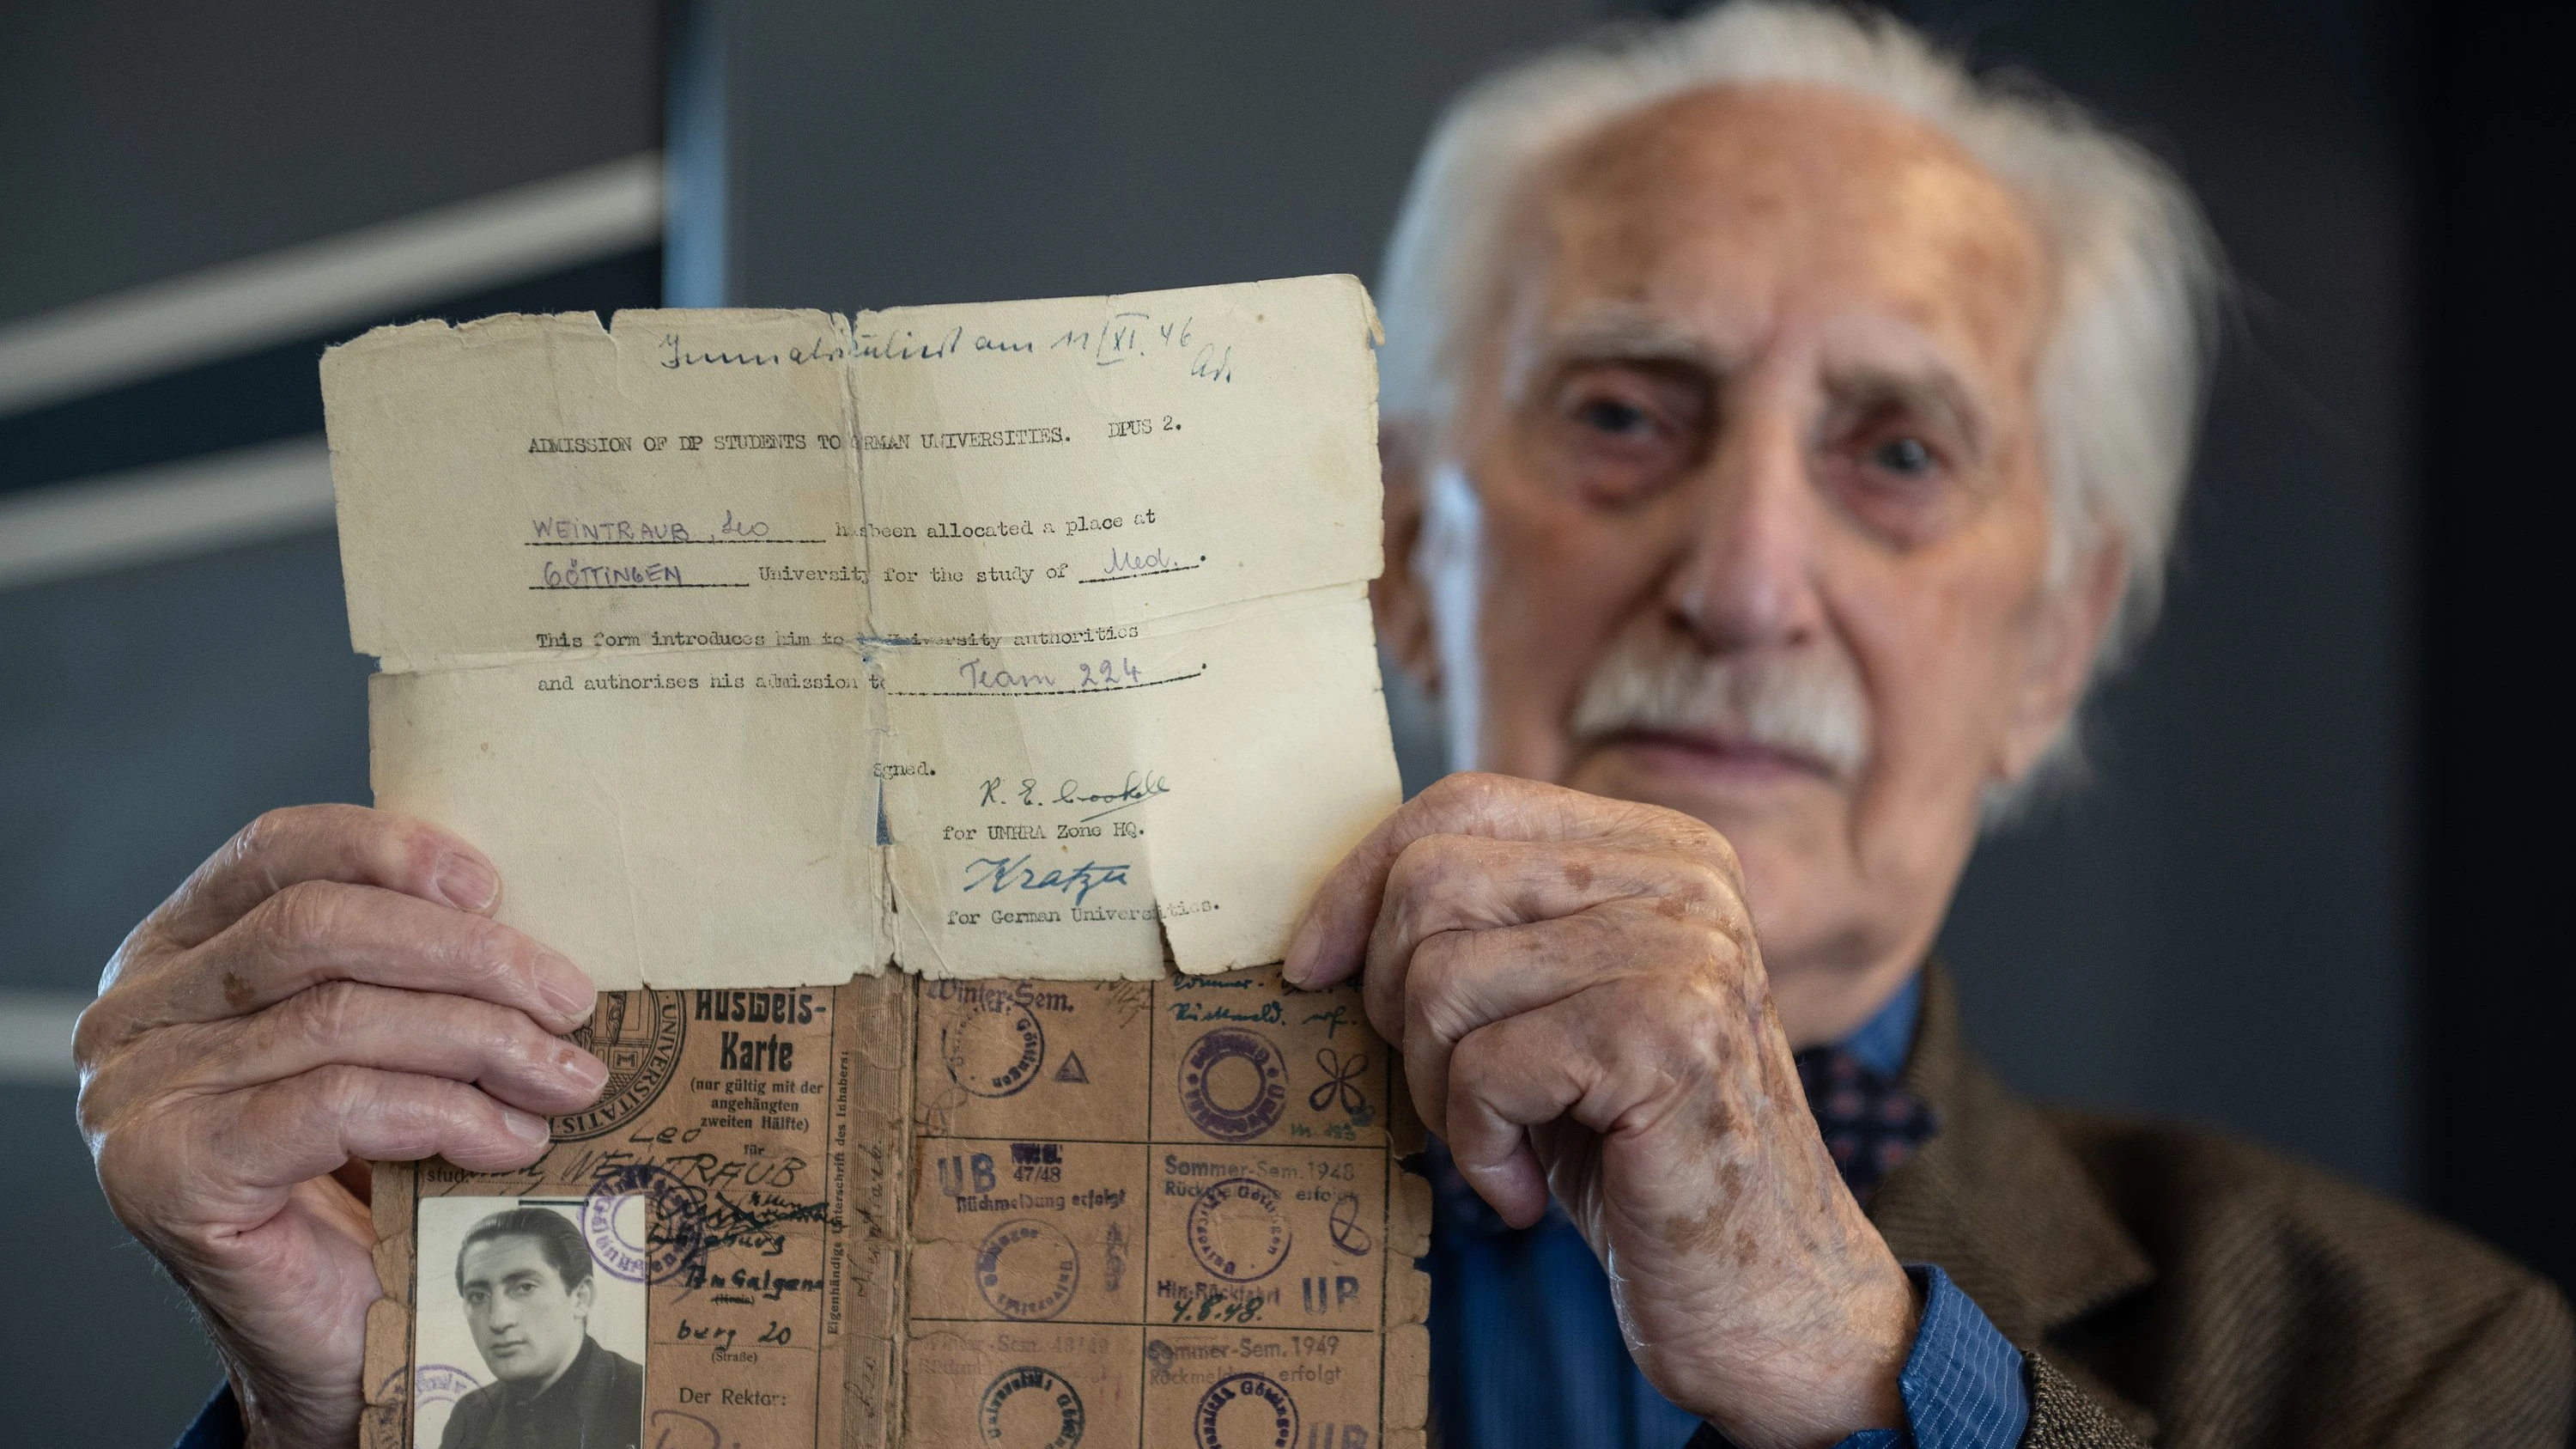 Immatrikuliert am 11/XI. 46
ADMISSION OF DP STUDENTS TO RMAN UNIVERSITIES. DPUS 2.
WEINTRAUB, Leo has been allocated a place at
GÖTTINGEN University for the study of Med. .
This form introduces him to University authorities
and authorises his admission to Team 224 .
Sgned.
R. E.
for UNRRA Zone HQ.
for German Universities.
Ausweis-
Karte
(nur gültig mit der
angehängten
zweiten Hälfte)
für
Leo
stud. WEINTRAUB
Am Galgen
(Kreis)
berg 20
(Straße)
Der Rektor:
Eigenhändige Unterschrift des Inhabers:
UNIVERSITATIS
Winter-Sem.
Sommer-
Rückmeld. erf.
UB 47/48
Rückmeldung erfolgt
Sommer-Sem. 1948
Rückmeldung erfolgt
Hin-Rückfahrt UB
4.8.48.
Winter-Sem. 48/49
Sommer-Sem. 1949
Rückmeldung erfolgt
Universität Göttingen
UB